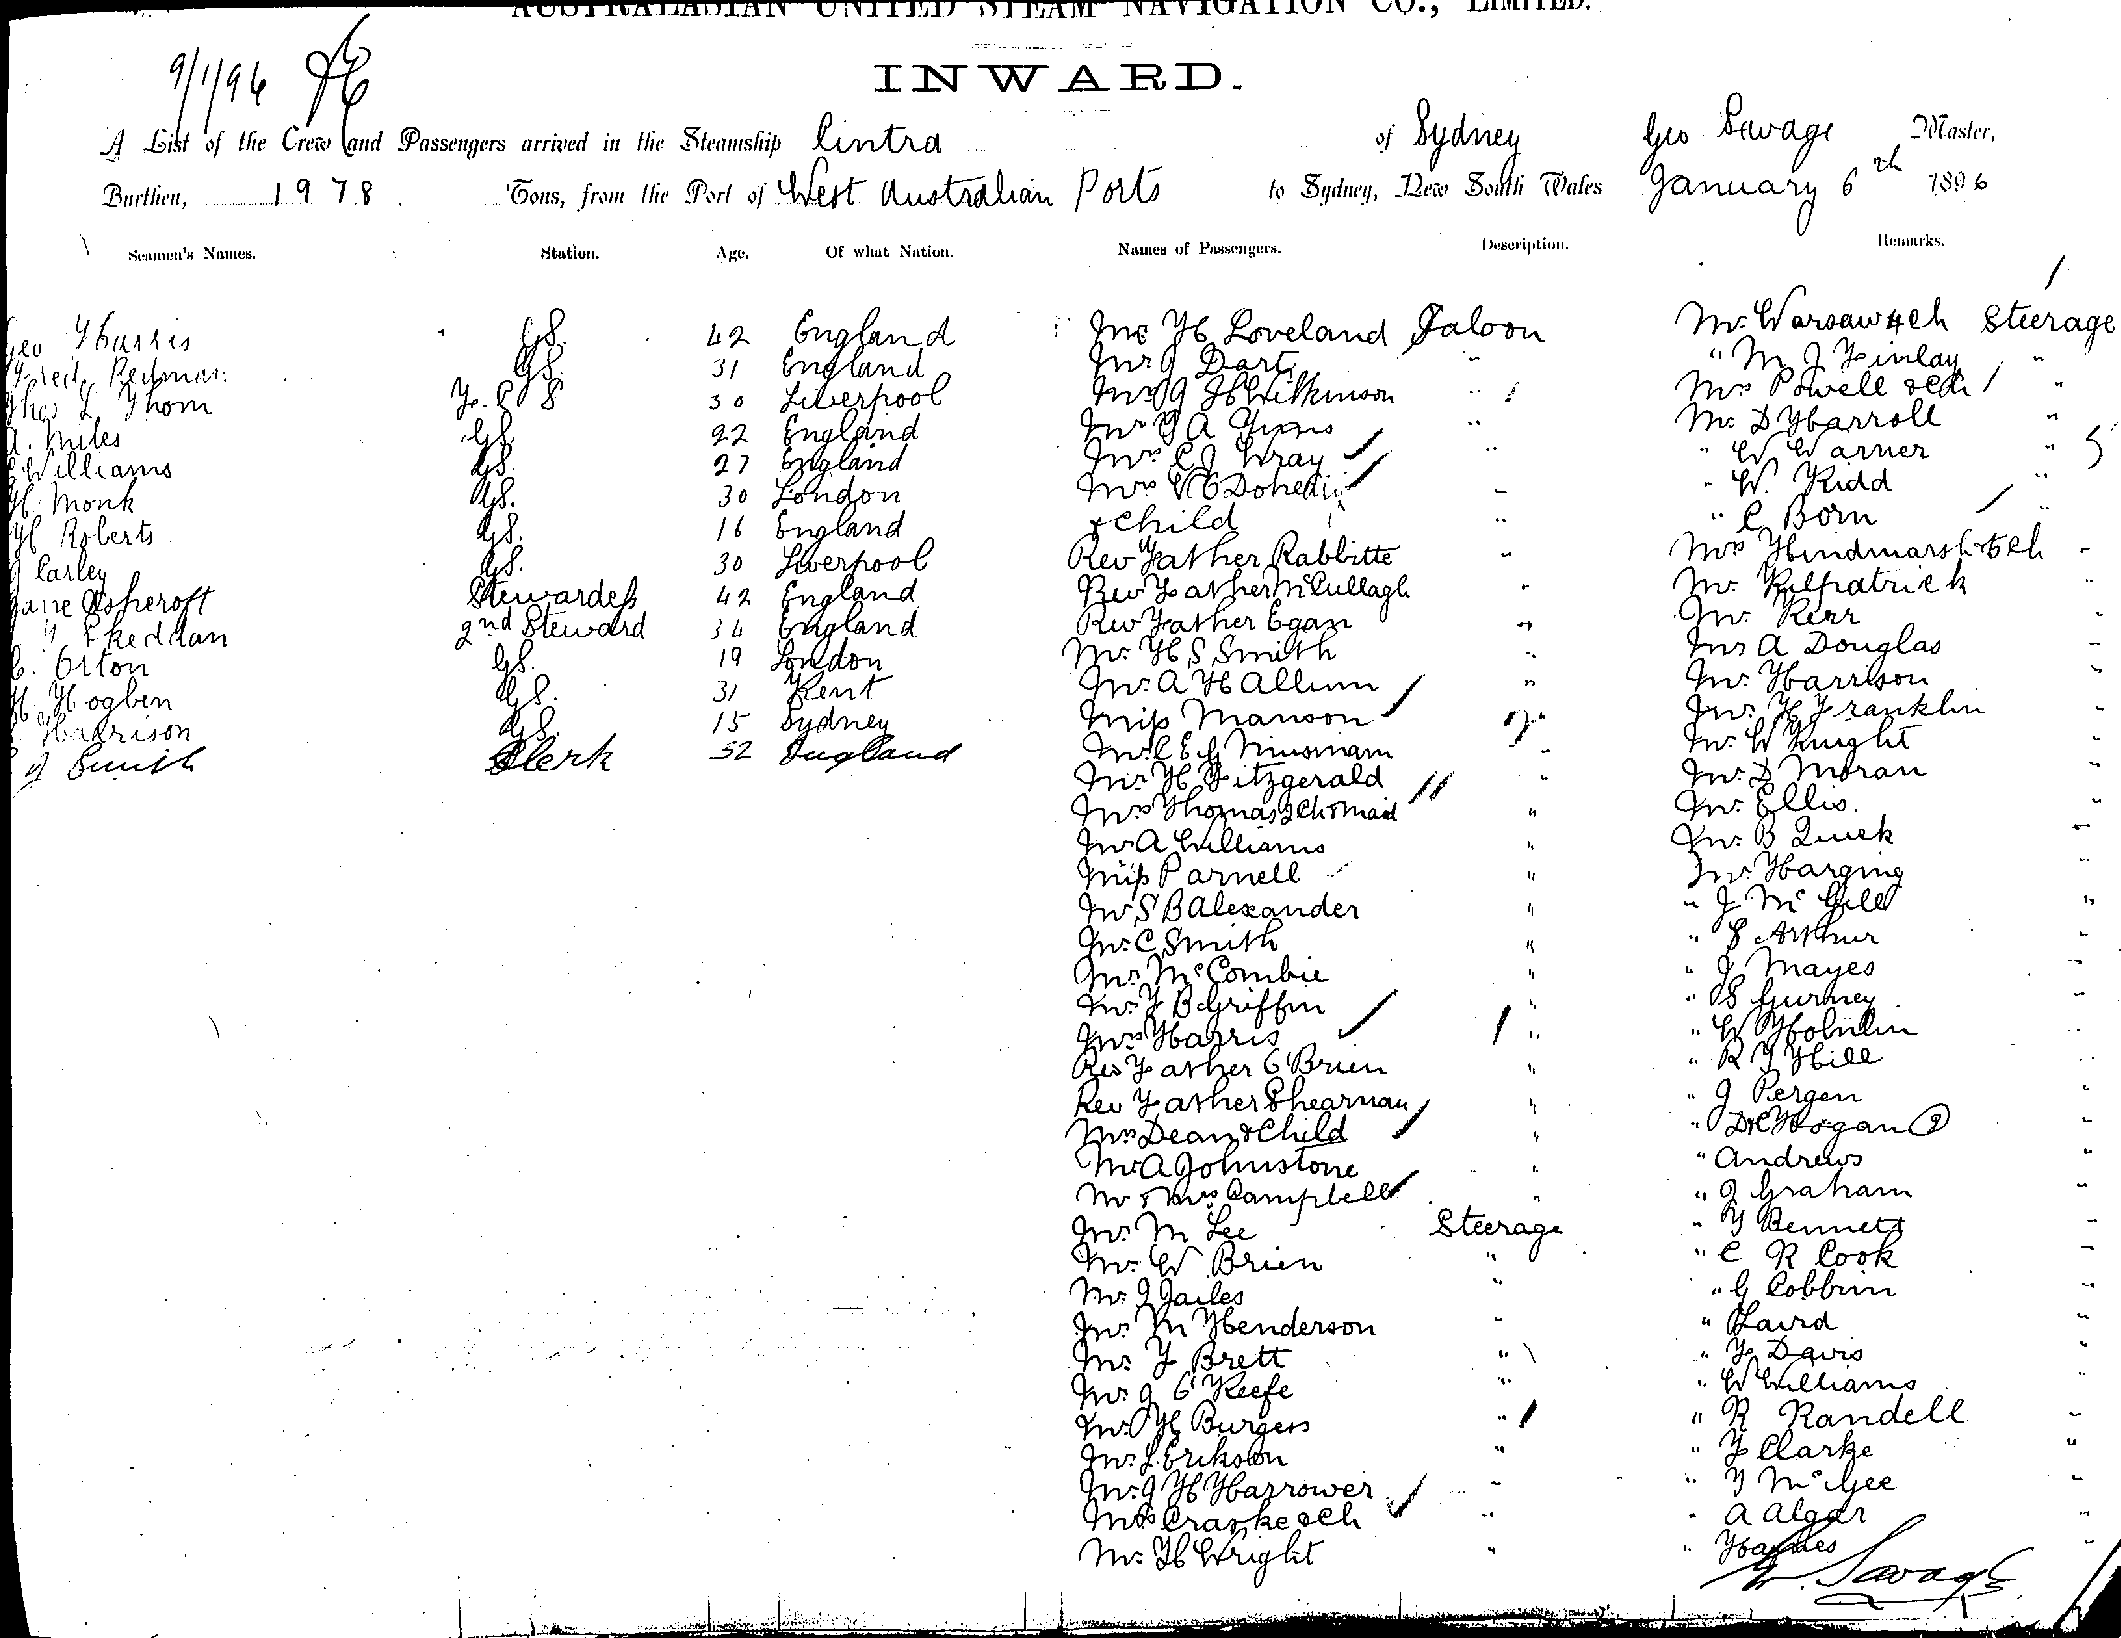 AUSTRALASIAN UNITED STEAM NAVIGATION CO., LIMITED.
INWARD.
9/1/96
A List of the Crew and Passengers arrived in the Steamship Cintra of Sydney Geo Savage Master,
Burthen, 1978 Tons, from the Port of West Australian Ports to Sydney, New South Wales January 6th 1896
Seamen's Names. Station. Age. Of what Nation. Names of Passengers. Description. Remarks.
Geo Harris GS. 42 England
Fred Redman GS. 31 England
Thos L Thom F.C S 30 Liverpool
Miles GS. 22 England
Williams GS. 27 England
H. Monk GS. 30 London
H Roberts GS. 16 England
J Carley GS. 30 Liverpool
Jane Ashcroft Stewardess 42 England
Skeddan 2nd Steward 34 England
C. Orton GS. 19 London
H. Hogben GS. 31 Kent
Harrison GS. 15 Sydney
J Smith Clerk 52 England
Mr H Loveland Saloon
Mr J Dart "
Mr J H Wilkinson "
Mr G A "
Mrs C J Wray "
Mrs
& Child "
Rev Father Rabbitte "
Rev Father McCullagh "
Rev Father Egan "
Mr. H. S Smith "
Mr. A H Allum "
Miss Manson "
Mr. C E G "
Mr. H Fitzgerald "
Mrs Thomas 2 Ch & Maid "
Mr A Williams "
Miss Parnell "
Mr S B Alexander "
Mr. C Smith "
Mr. McCombie "
Mr. F B Griffin "
Mrs Harris "
Rev Father O'Brien "
Rev Father Shearman "
Mrs Dean & Child "
Mr A Johnstone "
Mr & Mrs Campbell "
Mr. M Lee Steerage
Mr. W Brien "
Mr. J Jailes "
Mr. M Henderson "
Mr. F Brett "
Mr. J O'Keefe "
Mr. H Burgess "
Mr. L. Erikson "
Mr. J H Harrower "
Mrs Craske & Ch "
Mr. H Wright "
Mrs Warsaw 4 Ch Steerage
" M J Finlay "
Mrs Powell & Ch "
Mr. D Harroll "
" W Warner "
" W. Kidd "
" C Born "
Mrs Hindmarsh & 5 Ch "
Mr. Kilpatrick "
Mr. Kerr "
Mr A Douglas "
Mr. Harrison "
Mr. H Franklin "
Mr. W Knight "
Mr. D Moran "
Mr. Ellis. "
Mr. B Quick "
Mr. Harging "
" J McGill "
" S Arthur "
" J Mayes "
" S Gurney "
" W "
" R J Hill "
" J Pergen "
" Hogan (2) "
" Andrews "
" J Graham "
" Bennett "
" C R Cook "
" G Cobbin "
" Laird "
" F Davis "
" W Williams "
" R Randell "
" F Clarke "
" McGee "
" A Algar "
" "
G. Savage